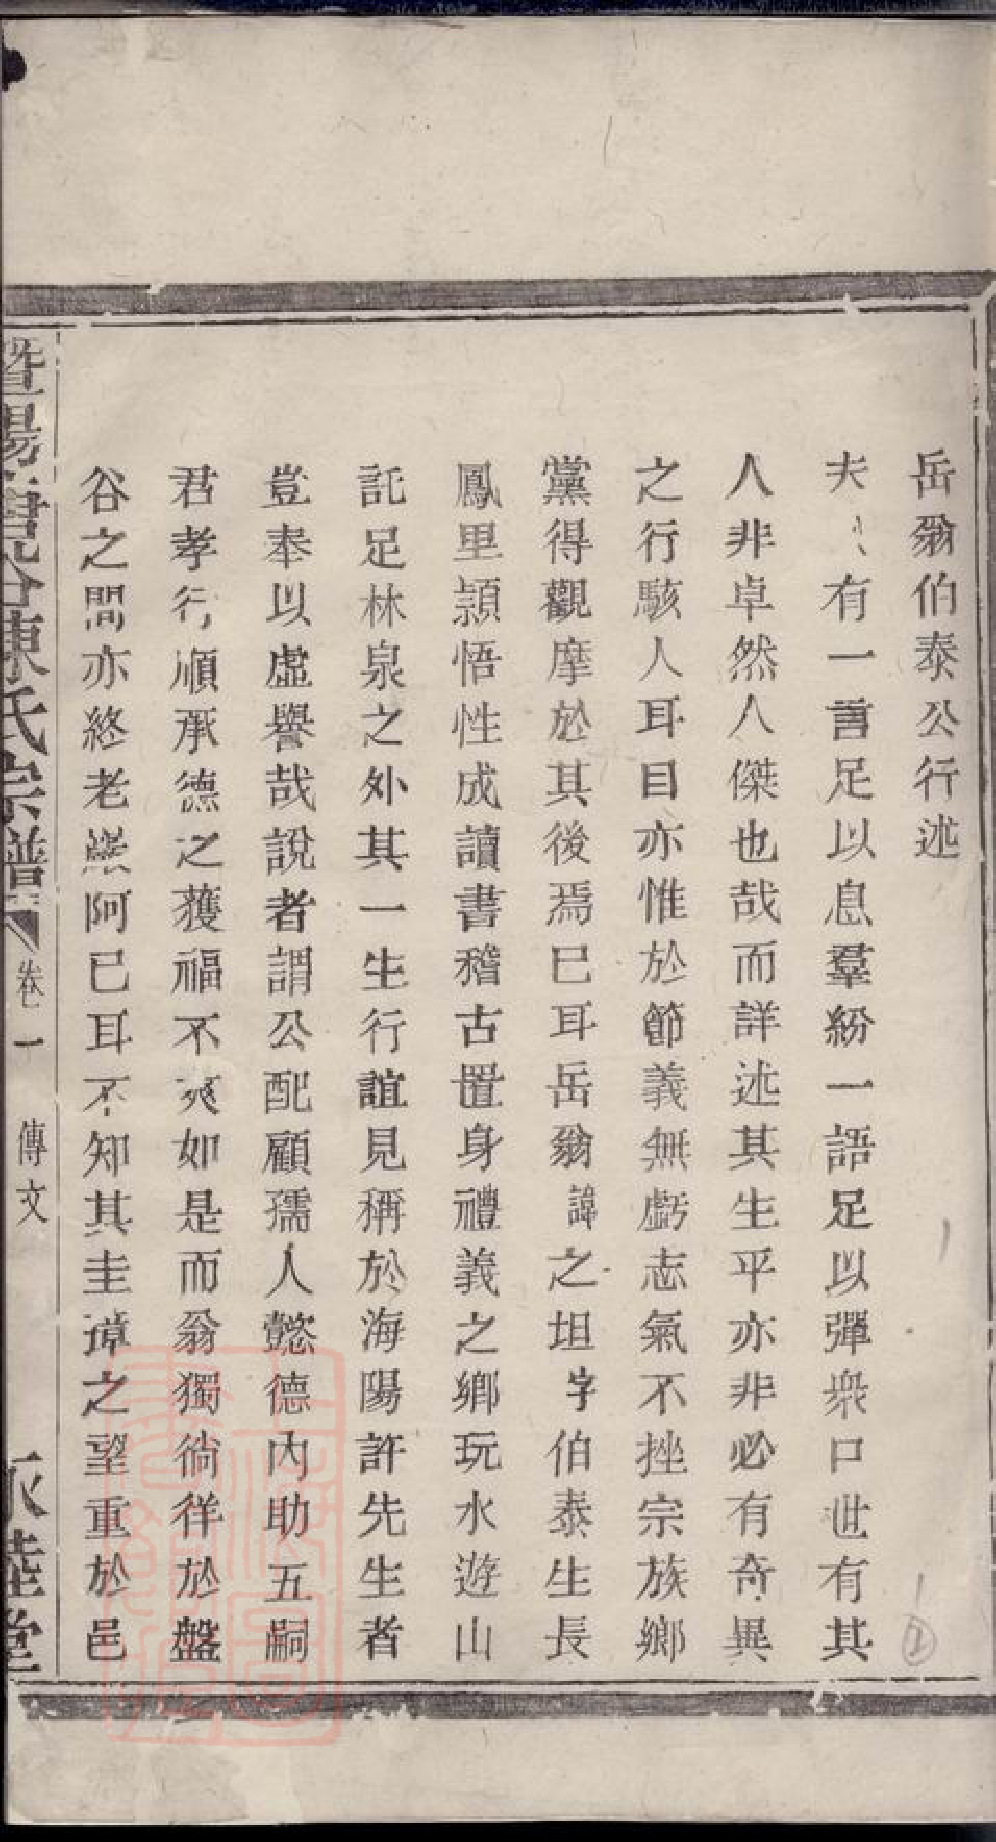 岳翁伯泰公行述
夫人有一言足以息羣紛一語足以彈衆口世有其
人非卓然人傑也哉而詳述其生平亦非必有奇異
之行駭人耳目亦惟於節義無虧志氣不挫宗族鄉
黨得觀摩於其後焉已耳岳翁諱之坦字伯泰生長
鳳里頴悟性成讀書稽古置身禮義之鄉玩水遊山
託足林泉之外其一生行誼見稱於海陽許先生者
豈奉以虛譽哉說者謂公配顧孺人懿德內助五嗣
君孝行順承德之獲福不爽如是而翁獨徜徉於盤
谷之間亦終老巖阿已耳不知其圭璋之望重於邑
暨陽 谷陳氏宗譜 卷一 傳文 睦堂